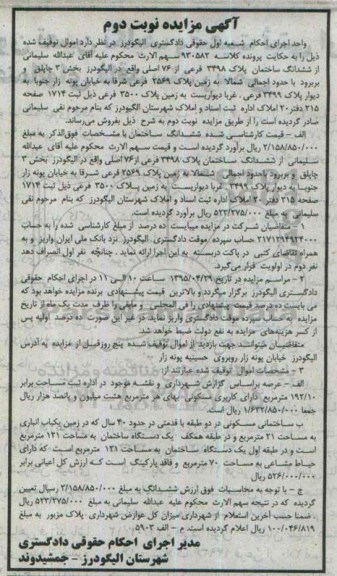 آگهی مزایده نوبت دوم
واحد اجرای احکام شعبه اول حقوقی دادگستری الیگودرز در نظر دارد اموال توقیف شده
ذیل را به حکایت پرونده کلاسه ۹۳۰۵۸۲ سهم الارث محکوم علیه آقای عبدالله سلیمانی
از ششدانگ ساختمان پلاک ۳۴۹۸ فرعی از ۷۶ اصلی واقع در الیگودرز بخش ۳ چاپلق و
بربرود با حدود اجمالی شمالا به زمین پلاک ۲۵۶۹ فرعی شرقا به خیابان پونه زار جنوبا به
دیوار پلاک ۳۴۹۹ فرعی، غربا دیواریست به زمین پلاک ۳۵۰۰ فرعی ذیل ثبت ۱۷۱۴ صفحه
۲۱۵ دفتر ۲۰ املاک اداره ثبت اسناد و املاک شهرستان الیگودرز که بنام مرحوم تقی سلیمانی
صادر گردیده است را از طریق مزایده نوبت دوم به شرح ذیل بفروش می‌رساند.
الف - قیمت کارشناسی شده ششدانگ ساختمان با مشخصات فوق‌الذکر به مبلغ
۲/۱۵۸/۸۵۰/۰۰۰ ریال برآورد گردیده است و قیمت سهم الارث محکوم علیه آقای عبدالله
سلیمانی از ششدانگ ساختمان پلاک ۳۴۹۸ فرعی از ۷۶ اصلی واقع در الیگودرز بخش ۳
چاپلق و بربرود با حدود اجمالی شمالا به زمین پلاک ۲۵۶۹ فرعی شرقا به خیابان پونه زار
جنوبا به دیوار پلاک ۳۴۹۹ فرعی غربا دیواریست به زمین پلاک ۳۵۰۰ فرعی ذیل ثبت ۱۷۱۴
صفحه ۲۱۵ دفتر ۲۰ املاک اداره ثبت اسناد و املاک شهرستان الیگودرز که بنام مرحوم تقی
سلیمانی به مبلغ ۵۲۳/۲۷۵/۰۰۰ ریال برآورد گردیده است.
۱ - متقاضیان شرکت در مزایده میبایست ده درصد از مبلغ کارشناسی شده را به حساب
۲۱۷۱۲۹۴۹۲۴۰۰۰ حساب سپرده موقت دادگستری الیگودرز نزد بانک ملی ایران واریز و به
همراه تقاضای کتبی در پاکت دربسته به این اجرا ارائه نماید. چنانچه نفر اول انصراف دهد
نفر دوم در اولویت قرار می‌گیرد.
۲ - مراسم مزایده در تاریخ ۱۳۹۵/۰۴/۲۹ ساعت ۱۰ الی ۱۱ در اجرای احکام حقوقی
دادگستری الیگودرز برگزار میگردد و بالاترین قیمت پیشنهادی برنده مزایده خواهد بود که
می بایست ده درصد قیمت پیشنهادی را فی المجلس و مابقی را ظرف مدت یک ماه از تاریخ
مزایده به حساب سپرده موقت دادگستری واریز نماید در غیر این صورت ده درصد اولیه پس
از کسر هزینه‌های مزایده به نفع دولت ضبط خواهد شد.
متقاضیان میتوانند جهت بازدید از اموال توقیف شده پنج روز قبل از مزایده به آدرس
الیگودرز خیابان پونه زار روبروی حسینیه پونه زار
۳ - مشخصات اموال توقیف شده عبارتند از:
الف - عرصه براساس گزارش شهرداری و نقشه موجود در اداره ثبت مساحت برابر
۱۹۲/۱۰ مترمربع دارای کاربری مسکونی بهای هر مترمربع هشت میلیون و پانصد هزار ریال
جمعا ۱/۶۳۲/۸۵۰/۰۰۰ ریال است.
ب ساختمانی مسکونی در دو طبقه با قدمتی در حدود ۴۰ سال که در زمین یکباب انباری
به مساحت ۲۱ مترمربع و در طبقه همکف یک دستگاه ساختمان به مساحت ۱۲۱ مترمربع
است و در طبقه اول یک دستگاه ساختمان به مساحت ۱۲۱ مترمربع است که دارای
حیاط مشاعی به مساحت ۷۰ مترمربع و فاقد پارکینگ است که ارزش کل اعیانی برابر
۵۲۶/۰۰۰/۰۰۰ ریال است.
ج - با توجه به محاسبات فوق ارزش ششدانگ به مبلغ ۲/۱۵۸/۸۵۰/۰۰۰ ریال تعیین
گردیده که در نتیجه سهم الارث محکوم علیه عبدالله سلیمانی به مبلغ ۵۲۳/۲۷۵/۰۰۰
ضمنا حسب آخرین استعلام از شهرداری میزان کل عوارض شهرداری پلاک مزبور به مبلغ
۱۰۰/۰۴۶/۸۱۹ ریال اعلام گردیده است. م - الف ۵۹۰۳
مدیر اجرای احکام حقوقی دادگستری
شهرستان الیگودرز - جمشیدوند